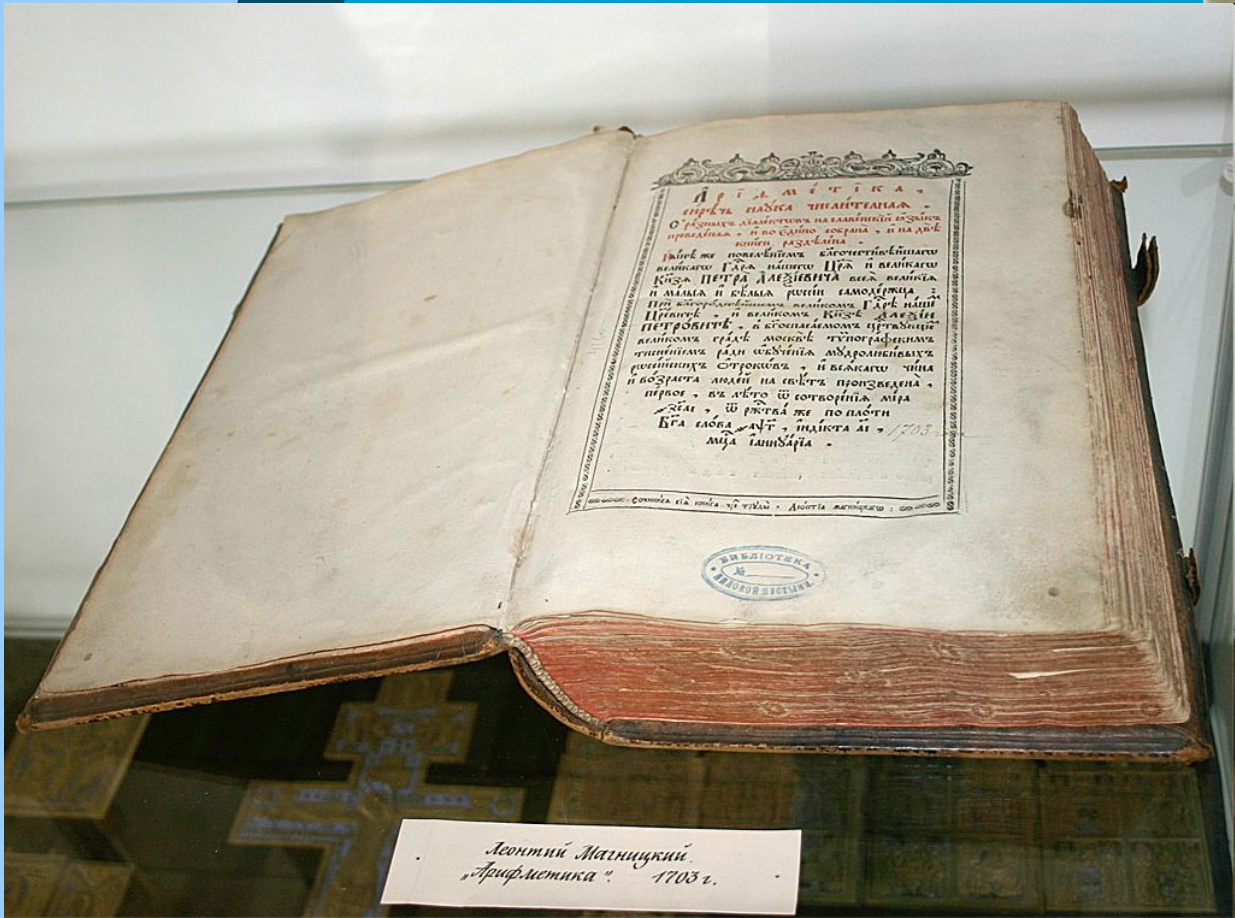 А҆риѳмე́тїка ,
сирѣчь наꙋ́ка числи́телная .
С̾ ра́зныхъ дїале́ктѡвъ на славе́нскїй ѧ҆зы́къ
преведе́наѧ , и҆ во є҆ди́но собрана̀ , и҆ на двѣ̀
кни̑ги раздѣлена̀ .
Нн҃ѣ же повелѣ́нїемъ благочести́вѣйшагѡ
вели́кагѡ Гдⷭ҇рѧ на́шегѡ Цр҃ѧ̀ и҆ вели́кагѡ
Кнѧ́зѧ ПЕТРА̀ А҆ЛЕѮІ́ЕВИЧА всеѧ̀ вели́кїѧ
и҆ ма́лыѧ и҆ бѣ́лыѧ рѡссі́и самоде́ржца :
Прѝ благоро́днѣйшемъ вели́комъ Гдⷭ҇рѣ на́шемъ
Цр҃е́вичѣ , и҆ вели́комъ Кн҃зѣ А҆ЛЕѮІ́И
ПЕТРО́ВИЧѢ , в̾ бг҃оспаса́емомъ ца́рствующемъ
вели́комъ гра́дѣ москвѣ̀ тѷпогра́фскимъ
тисне́нїемъ ра́ди ѡ҆бꙋче́нїѧ мꙋдролюби́выхъ
рѡссі́йскихъ ѻ҆́трокѡвъ , и҆ всѧ́кагѡ чи́на
и҆ во́зраста люде́й на свѣ́тъ произведена̀ ,
пе́рвое , въ лѣ́то ѿ сотворе́нїѧ мі́ра
҂зс҃аі , ѿ ржⷭ҇тва̀ же по пло́ти
Бг҃а сло́ва ҂аѱ҃г , і҆ндї́кта а҃і , 1703
мцⷭ҇а і҆аннꙋа́рїа .
Сочини́сѧ сїѧ̀ кни́га чрез̾ трꙋды̀ . Леѡ́нтїа магни́цкагѡ :
БИБЛІОТЕКА
№
Леонтий Магницкий.
„Арифметика". 1703 г.